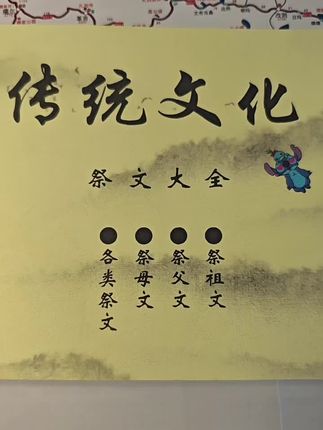 传统文化
祭文大全
●祭祖文
●祭父文
●祭母文
●各类祭文